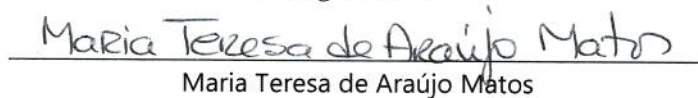 Maria Teresa de Araújo Matos
Maria Teresa de Araújo Matos